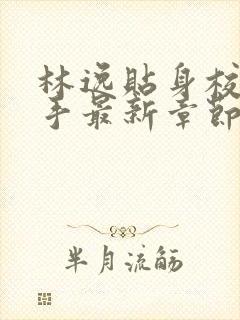 林逸貼身校
手最新章節
半月流觞